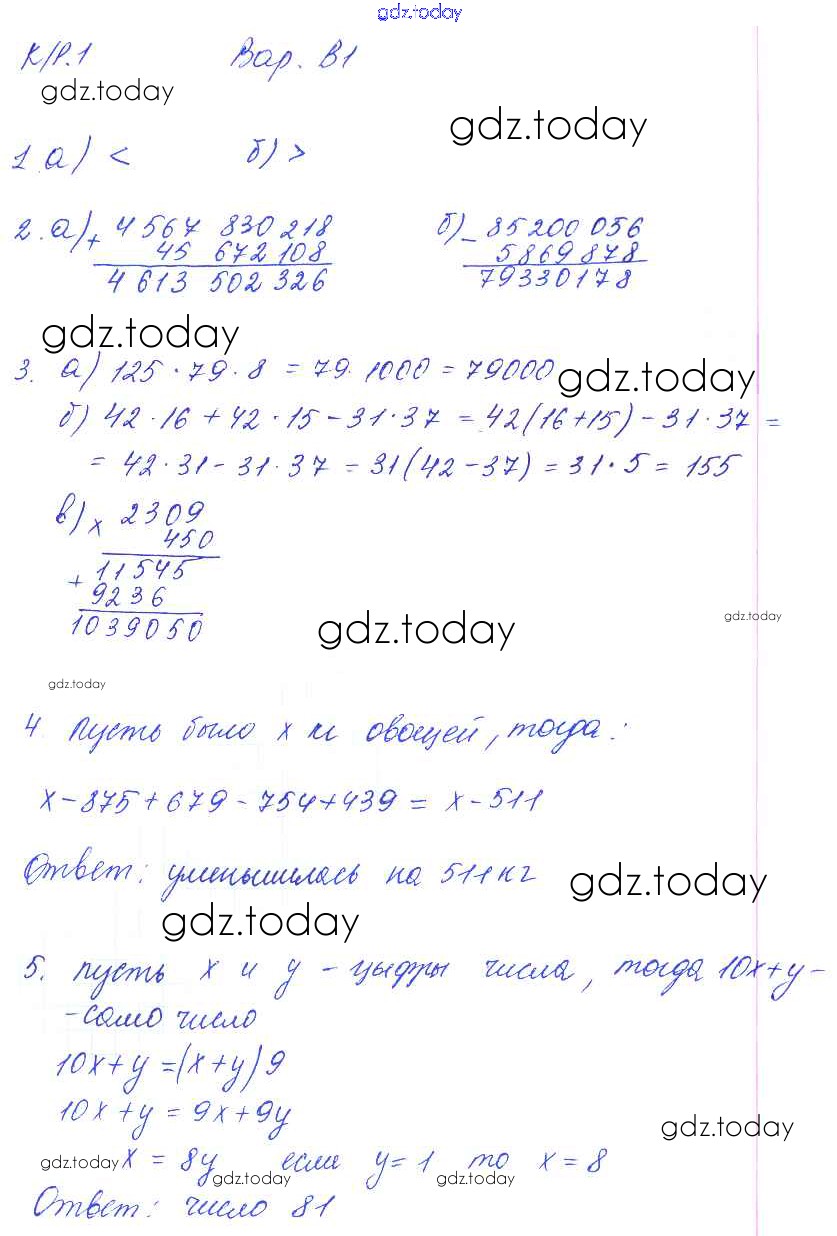 gdz.today
К/Р.1 Вар. В1
gdz.today
gdz.today
1 а) < б) >
2. а) + 4567 830 218 б) - 85200 056
45 672 108 5869 878
4 613 502 326 79330178
gdz.today
3. а) 125 · 79 · 8 = 79 · 1000 = 79000
gdz.today
б) 42 · 16 + 42 · 15 - 31 · 37 = 42(16+15) - 31 · 37 =
= 42 · 31 - 31 · 37 = 31(42-37) = 31 · 5 = 155
в) x 2309
450
+ 11545
9236
1039050
gdz.today
gdz.today
gdz.today
4. Пусть было x кг овощей, тогда:
x - 875 + 679 - 754 + 439 = x - 511
Ответ: уменьшилась на 511 кг
gdz.today
gdz.today
5. Пусть x и y - цыфры числа, тогда 10x+y -
- само число
10x + y = (x + y) 9
10x + y = 9x + 9y
gdz.today
x = 8y если y = 1 то x = 8
gdz.today gdz.today gdz.today
Ответ: число 81